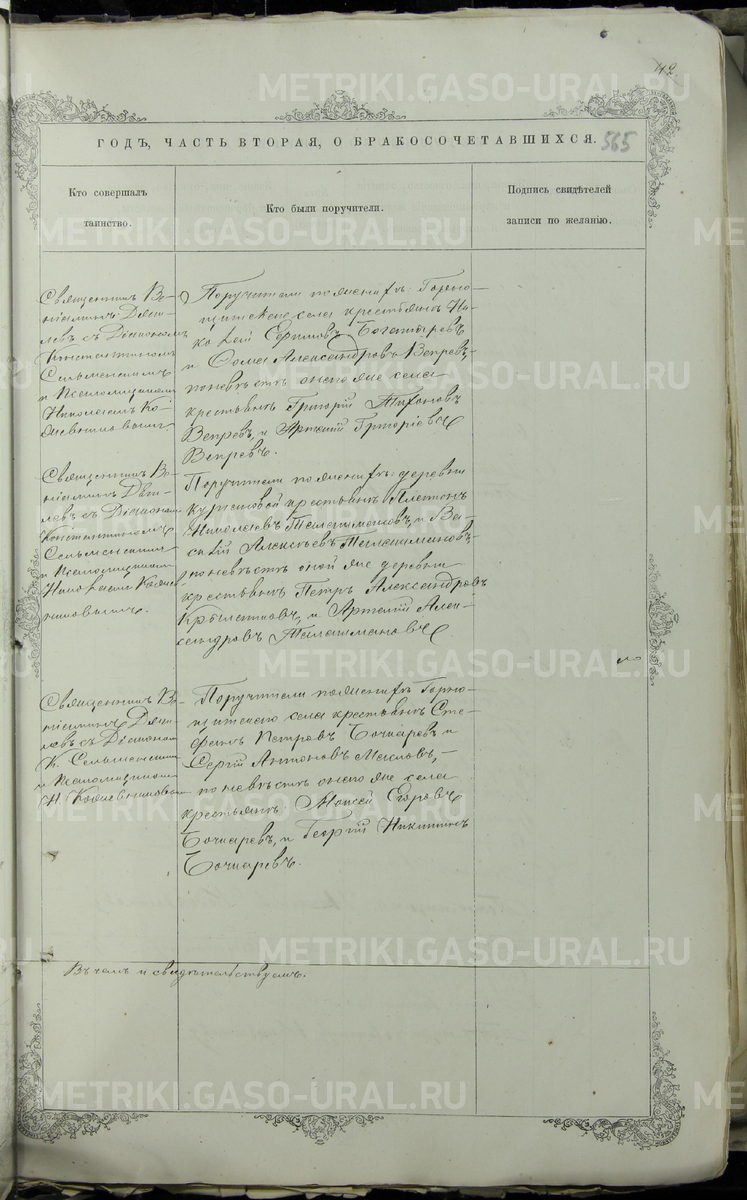 42.
ГОДЪ, ЧАСТЬ ВТОРАЯ, О БРАКОСОЧЕТАВШИХСЯ. 565
Кто совершалъ
таинство.
Кто были поручители.
Подпись свидѣтелей
записи по желанію.
Священникъ Ве-
ніаминъ
съ Діакономъ
Константиномъ
Сельменскимъ
и Псаломщикомъ
Николаемъ Ко-
Поручители по женихѣ: Горно-
щитскаго села крестьяне Ни-
колай Ефимовъ Богатыревъ
и Фома Александровъ Вепревъ,
по невѣстѣ онаго же села
крестьяне Григорій Тихоновъ
Вепревъ, и Артемій Григорьевъ
Вепревъ.
Священникъ Ве-
ніаминъ
съ Діакономъ
Константиномъ
Сельменскимъ
и Псаломщикомъ
Николаемъ
Поручители по женихѣ: деревни
Кургановой крестьяне Платонъ
Николаевъ Талашмановъ, и Ва-
силій Алексѣевъ Талашмановъ,
по невѣстѣ оной же деревни
крестьяне Петръ Александровъ
и Артемій Алек-
сандровъ Талашмановъ
Священникъ Ве-
ніаминъ
съ Діакономъ
К. Сельменскимъ
и Псаломщикомъ
Н.
Поручители по женихѣ Горно-
щитскаго села крестьяне Сте-
фанъ Петровъ Бочкаревъ и
Сергій Антоновъ Масловъ,
по невѣстѣ онаго же села
крестьяне: Моисей Егоровъ
Бочкаревъ, и Георгій Никитинъ
Бочкаревъ.
Въ чемъ и свидѣтельствуемъ.
METRIKI.GASO-URAL.RU